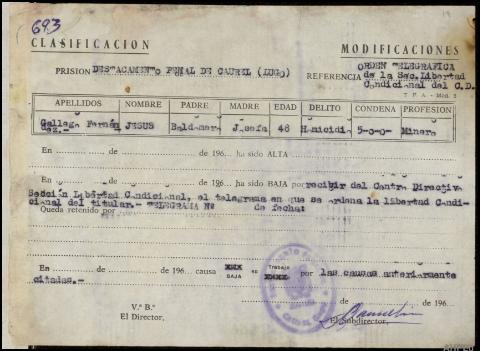 693
CLASIFICACION MODIFICACIONES
PRISION DESTACAMENTO PENAL DE CAUREL (LUGO) REFERENCIA ORDEN TELEGRAFICA
de la Sec. Libertad
Condicional del C.D.
T. P. A. - Mod. 2
APELLIDOS NOMBRE PADRE MADRE EDAD DELITO CONDENA PROFESION
Gallego Fernán JESUS Baldomero Josefa 48 Homicidio 5-0-0- Minero
dez.-
En de de 196 ha sido ALTA
En de de 196 ha sido BAJA por recibir del Centro Directivo
Sección Libertad Condicional, el telegrama en que se ordena la libertad Condi-
cional del titular.- TELEGRAMA Nº de fecha:
Queda retenido por
En de de 196 causa XXX en Trabajo XXXX por las causas anteriormente
BAJA
citadas.-
V.º B.º de de 196
El Director, El Subdirector,